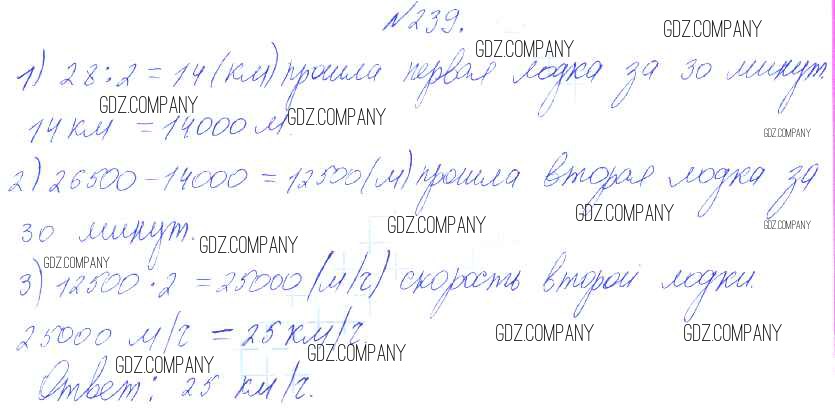 №239.
1) 28:2=14 (км) прошла первая лодка за 30 минут.
14 км = 14000 м.
2) 26500 - 14000 = 12500 (м) прошла вторая лодка за
30 минут.
3) 12500 · 2 = 25000 (м/ч) скорость второй лодки.
25000 м/ч = 25 км/ч.
Ответ: 25 км/ч.
GDZ.COMPANY
GDZ.COMPANY
GDZ.COMPANY
GDZ.COMPANY
GDZ.COMPANY
GDZ.COMPANY
GDZ.COMPANY
GDZ.COMPANY
GDZ.COMPANY
GDZ.COMPANY
GDZ.COMPANY
GDZ.COMPANY
GDZ.COMPANY
GDZ.COMPANY